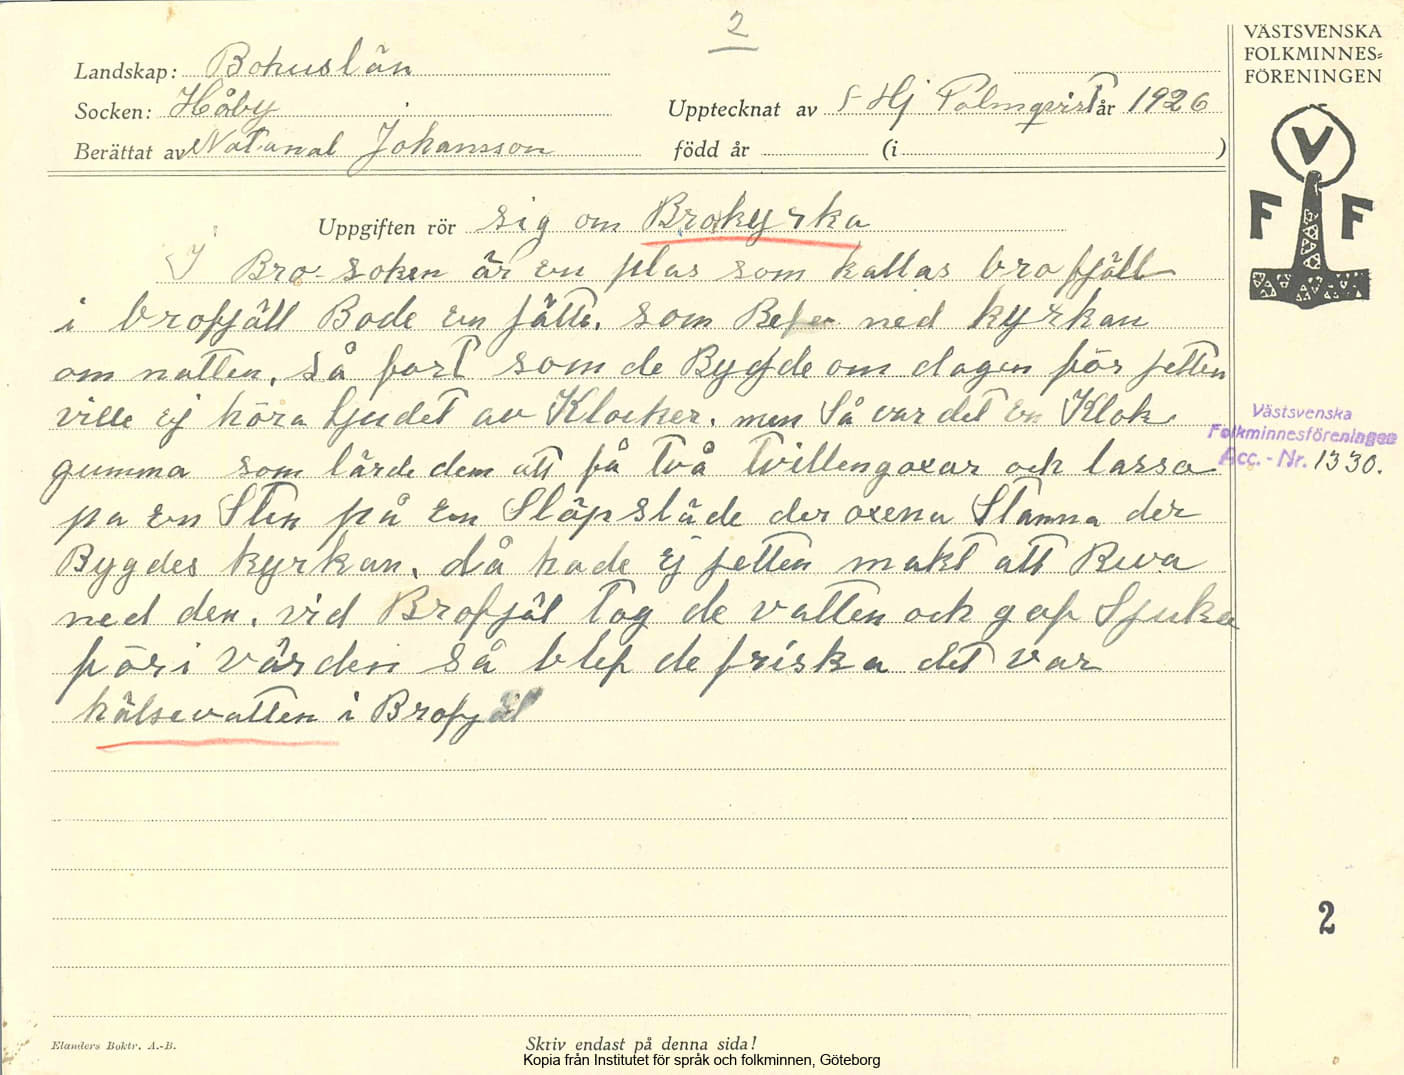 2
VÄSTSVENSKA
FOLKMINNES=
FÖRENINGEN
Landskap: Bohuslän
Socken: Håby
Upptecknat av Hj Palmqvist år 1926
Berättat av Natanal Johansson född år (i )
V
F F
Uppgiften rör sig om Brokyrka
I Bro soken är en plas som kallas brofjäll
i brofjäll Bode en jätte. som Refen ned kyrkan
om natten. så fort som de Bygde om dagen för jetten
ville ej höra ljudet av Klocker. men Så var det en Klok
gumma som lärde dem att få två tvillengoxar och lassa
pa en Sten på en Släpsläde der oxena Stanna der
Bygdes kyrkan. då hade ej jetten makt att Riva
ned den. vid Brofjäl tog de vatten och gaf Sjuka
för i värden så blef de friska det var
hälsevatten i Brofjäl
Västsvenska
Folkminnesföreningen
Acc.-Nr. 1330.
2
Elanders Boktr. A.-B.
Skriv endast på denna sida!
Kopia från Institutet för språk och folkminnen, Göteborg